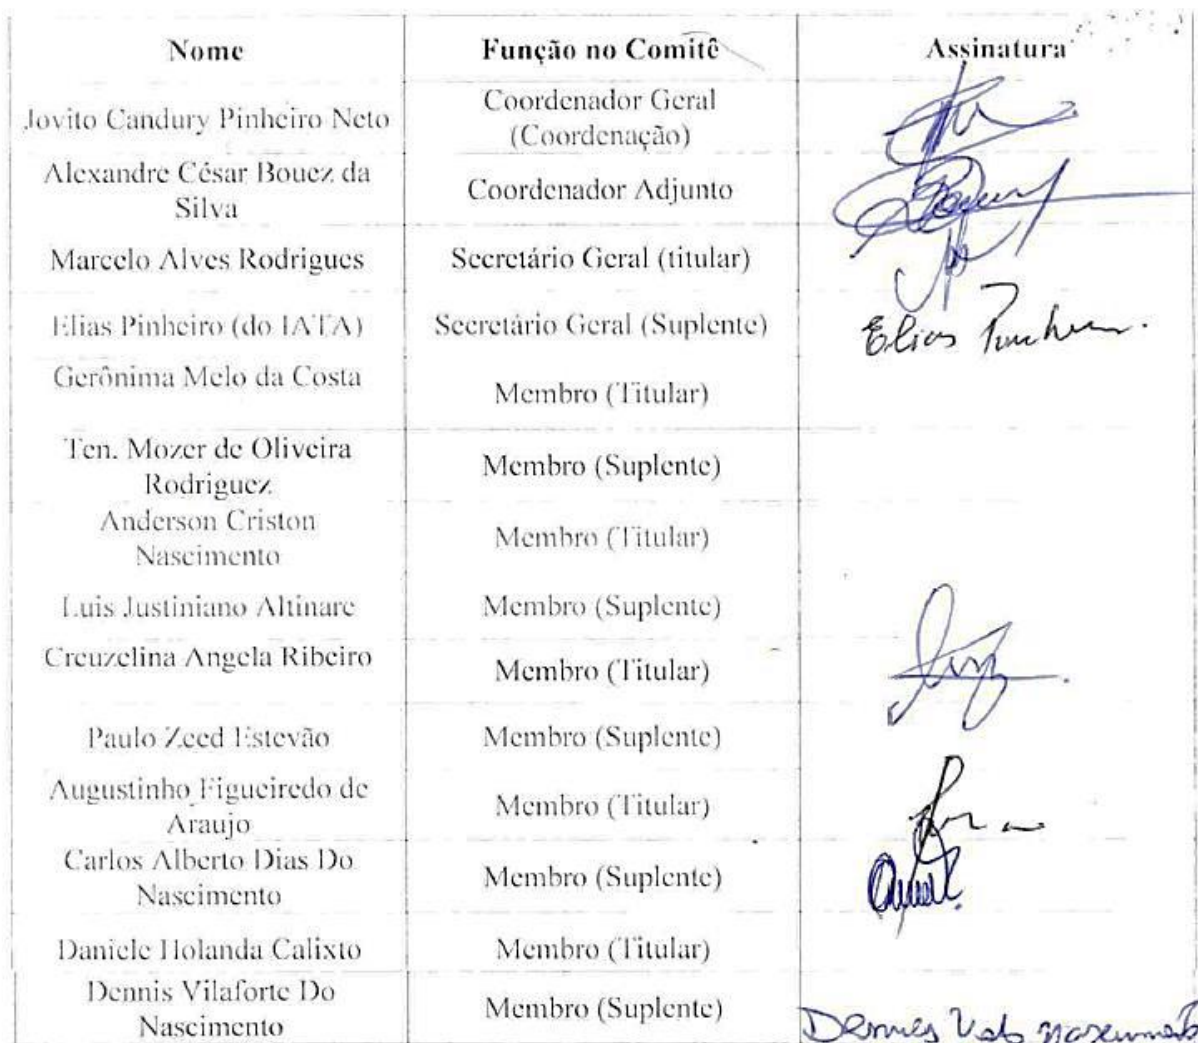 Nome Função no Comitê Assinatura
Jovito Candury Pinheiro Neto Coordenador Geral
(Coordenação)
Alexandre César Bouez da
Silva Coordenador Adjunto
Marcelo Alves Rodrigues Secretário Geral (titular)
Elias Pinheiro (do IATA) Secretário Geral (Suplente) Elias
Gerônima Melo da Costa Membro (Titular)
Ten. Mozer de Oliveira
Rodriguez Membro (Suplente)
Anderson Criston
Nascimento Membro (Titular)
Luis Justiniano Altinare Membro (Suplente)
Creuzelina Angela Ribeiro Membro (Titular)
Paulo Zeed Estevão Membro (Suplente)
Augustinho Figueiredo de
Araujo Membro (Titular)
Carlos Alberto Dias Do
Nascimento Membro (Suplente)
Daniele Holanda Calixto Membro (Titular)
Dennis Vilaforte Do
Nascimento Membro (Suplente)